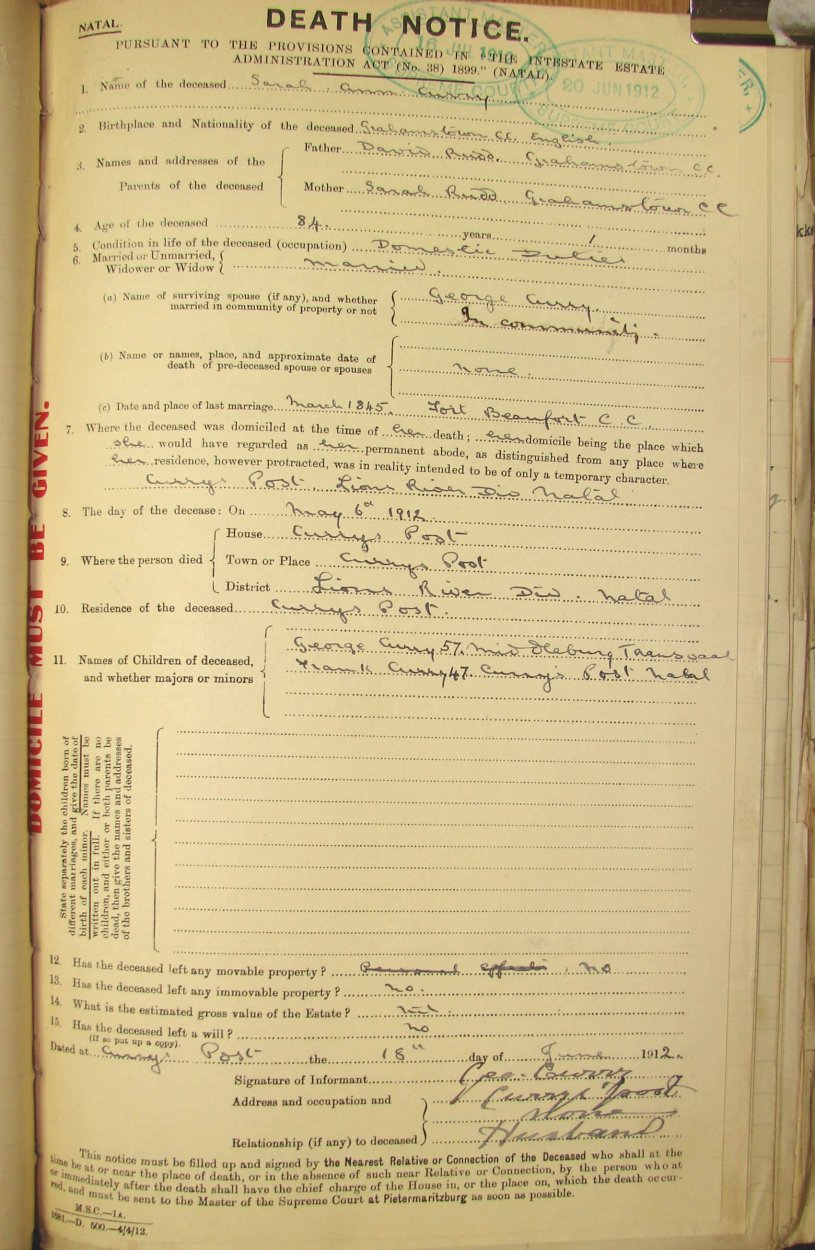 NATAL.
DEATH NOTICE.
PURSUANT TO THE PROVISIONS CONTAINED IN "THE INTESTATE ESTATE
ADMINISTRATION ACT (No. 38) 1899." (NATAL).
ASSISTANT MASTER
20 JUN 1912
1. Name of the deceased Sarah Ann Curry
2. Birthplace and Nationality of the deceased Grahamstown CC. English.
3. Names and addresses of the Parents of the deceased
Father David Rudd. Grahamstown CC.
Mother Sarah Rudd Grahamstown CC
4. Age of the deceased 84. years 1 months
5. Condition in life of the deceased (occupation) Domestic Duties
6. Married or Unmarried, Widower or Widow married.
(a) Name of surviving spouse (if any), and whether married in community of property or not
George Curry.
In community.
(b) Name or names, place, and approximate date of death of pre-deceased spouse or spouses
none.
(c) Date and place of last marriage March 1845. Fort Beaufort C.C.
7. Where the deceased was domiciled at the time of her death; her domicile being the place which
she would have regarded as her permanent abode, as distinguished from any place where
her residence, however protracted, was in reality intended to be of only a temporary character.
Currys Post, Lions River Div Natal
8. The day of the decease: On May 6th 1912
9. Where the person died
House Currys Post
Town or Place Currys Post
District Lions River Div. Natal
10. Residence of the deceased Currys Post.
11. Names of Children of deceased, and whether majors or minors
George Curry 57. Middleburg Transvaal
Frank Curry 47. Curry's Post Natal
DOMICILE MUST BE GIVEN.
State separately the children born of
different marriages, and give the date of
birth of each minor. Names must be
written out in full. If there are no
children, and either or both parents be
dead, then give the names and addresses
of the brothers and sisters of deceased.
12. Has the deceased left any movable property? Personal effects. no
13. Has the deceased left any immovable property? no.
14. What is the estimated gross value of the Estate? nil
15. Has the deceased left a will? no
(If so put up a copy).
Dated at Currys Post the 18th day of June 1912.
Signature of Informant Geo. Curry
Address and occupation and
Curry's Post
None
Relationship (if any) to deceased Husband
This notice must be filled up and signed by the Nearest Relative or Connection of the Deceased who shall at the
time be at or near the place of death, or in the absence of such near Relative or Connection, by the person who at
or immediately after the death shall have the chief charge of the House in, or the place on, which the death occur-
red, and must be sent to the Master of the Supreme Court at Pietermaritzburg as soon as possible.
M.S.C.—1A.
1681.—D. 500.—4/4/12.